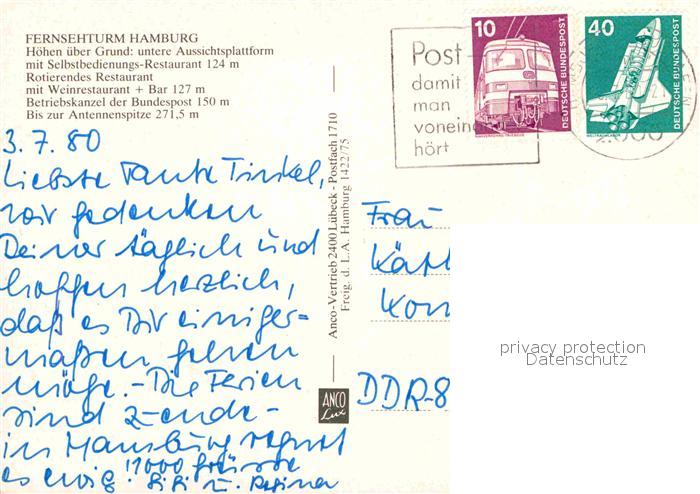 FERNSEHTURM HAMBURG
Höhen über Grund: untere Aussichtsplattform
mit Selbstbedienungs-Restaurant 124 m
Rotierendes Restaurant
mit Weinrestaurant + Bar 127 m
Betriebskanzel der Bundespost 150 m
Bis zur Antennenspitze 271,5 m
3.7.80
Liebste Tante Tinkel,
wir gedenken
Deiner täglich und
hoffen herzlich,
daß es Dir einiger-
maßen gehen
möge. - Die Ferien
sind z-ende -
in Hamburg regnet
es ewig! 1000 Grüsse
Bibi u. Regina
Anco-Vertrieb 2400 Lübeck - Postfach 1710
Freig. d. L.A. Hamburg 1422/75
ANCO
Lux
Post -
damit
man
voneinan
hört
10
DEUTSCHE BUNDESPOST
NAHVERKEHRS-TRIEBZUG
40
DEUTSCHE BUNDESPOST
WELTRAUMLABOR
2000
Frau
Kät
Kon
DDR-8
privacy protection
Datenschutz